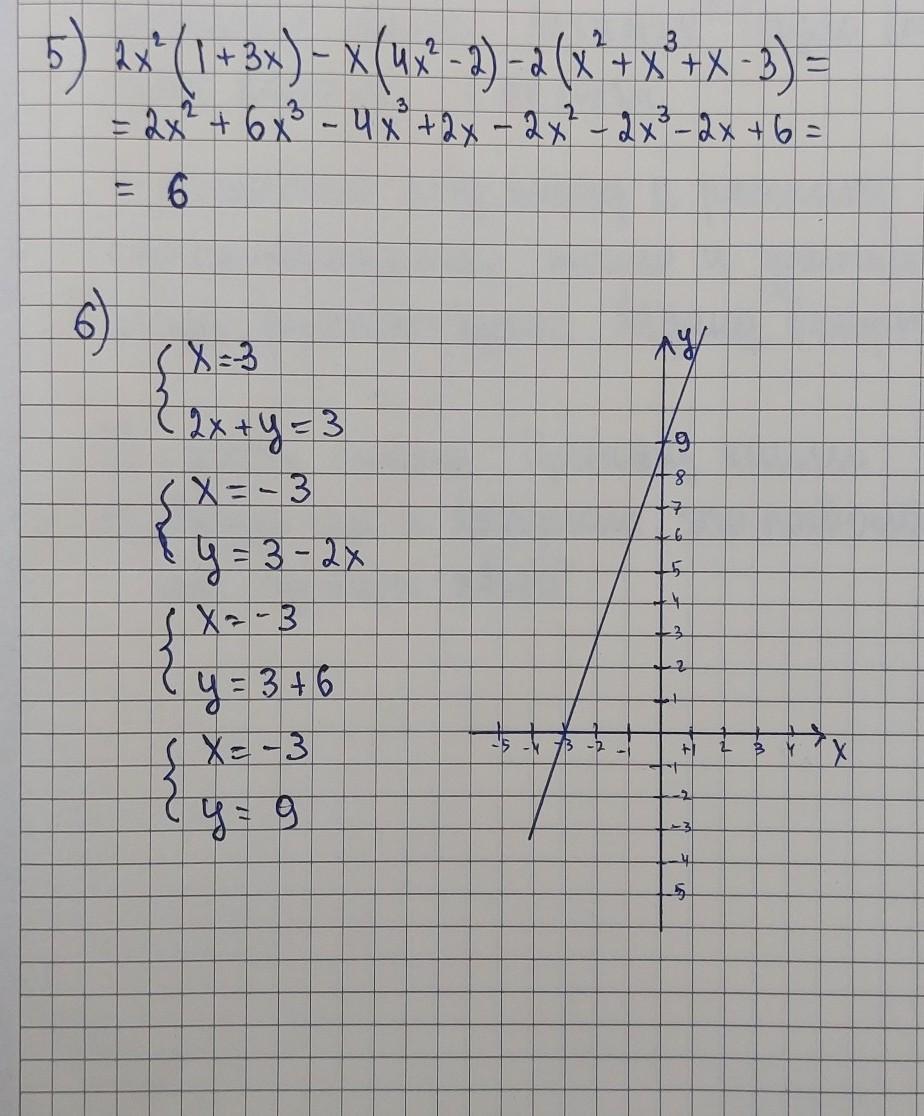 5) 2x²(1+3x) - x(4x²-2) - 2(x²+x³+x-3) =
= 2x² + 6x³ - 4x³ + 2x - 2x² - 2x³ - 2x + 6 =
= 6
6)
{ x=-3
2x+y=3
{ x=-3
y=3-2x
{ x=-3
y=3+6
{ x=-3
y= 9
y
9
8
7
6
5
4
3
2
1
-5 -4 -3 -2 -1 +1 2 3 4 x
-1
-2
-3
-4
-5